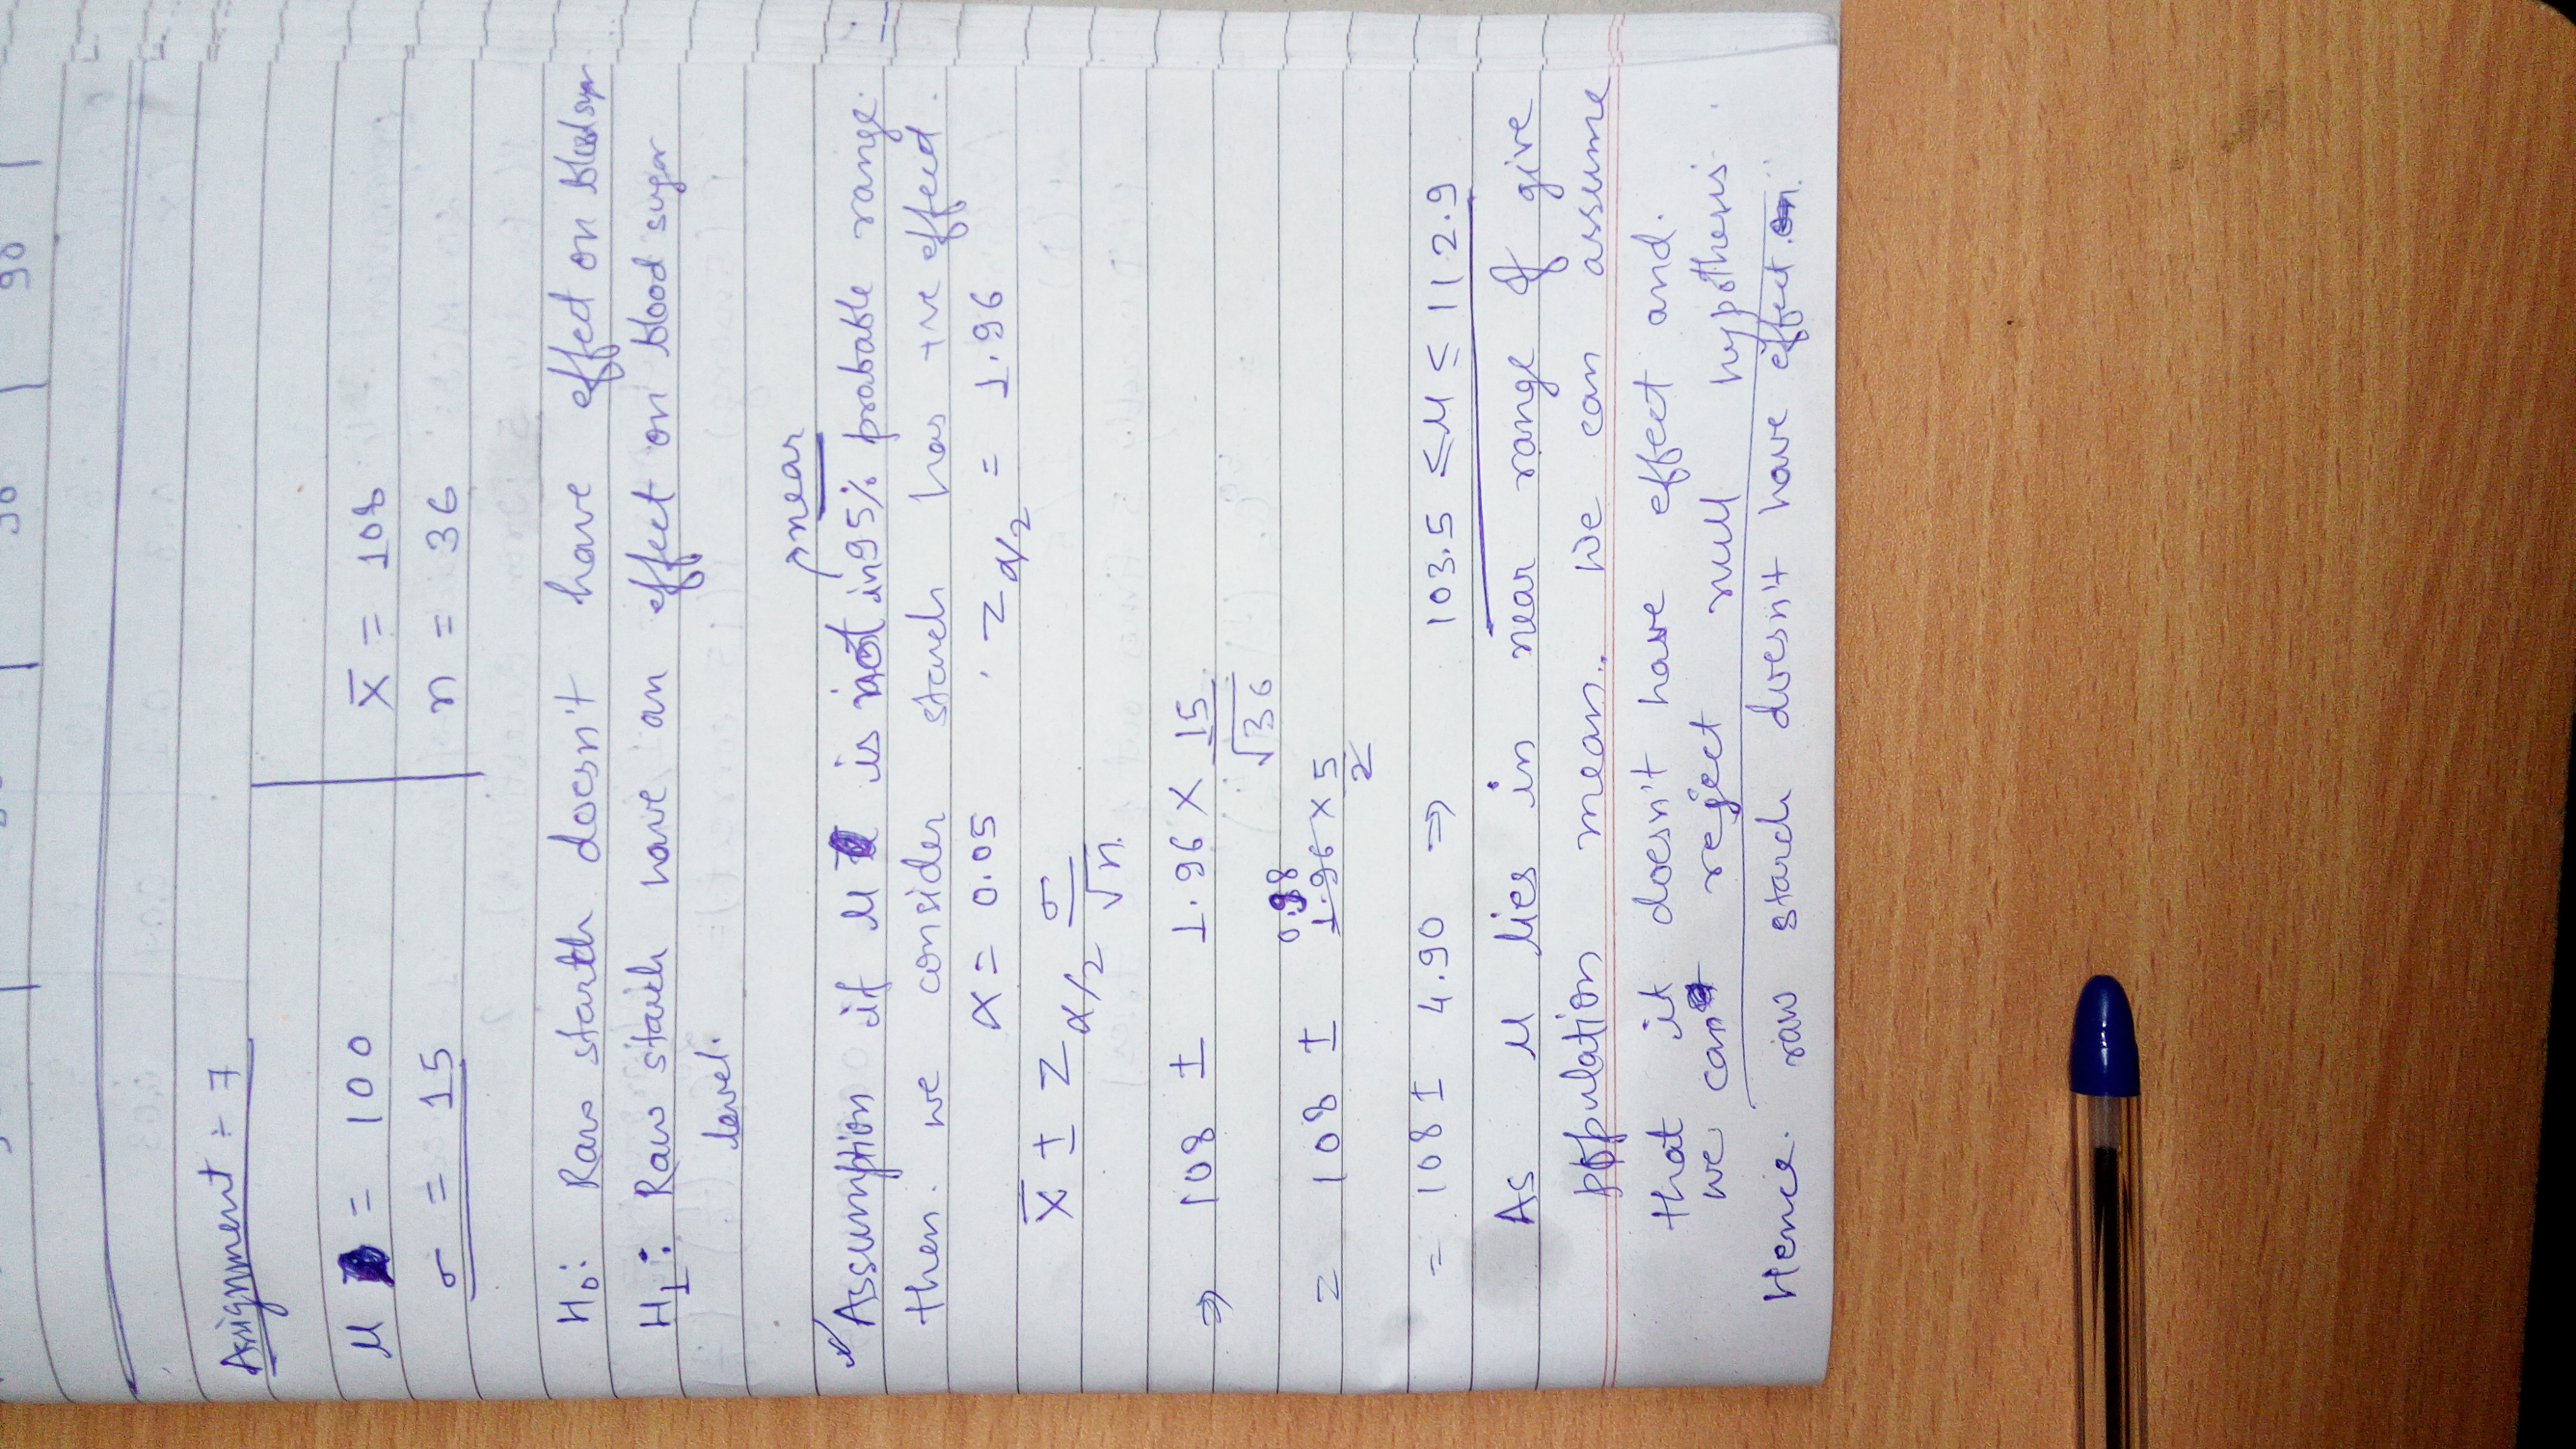 90
Assignment ÷ 7
μ = 100 X̄ = 108
σ = 15 n = 36
H₀: Raw starth doesn't have effect on blood
H₁: Raw starch have an effect on blood sugar
level.
near
Assumption if μ is in 95% probable range.
then. we consider starch has +ve effect.
α = 0.05 , Z α/2 = 1.96
X̄ ± Z α/2 σ/√n.
⇒ 108 ± 1.96 × 15/√36
0.98
= 108 ± 1.96 × 5/2
= 108 ± 4.90 ⇒ 103.5 ≤ μ ≤ 112.9
As μ lies in near range of give
population mean. we can assume
that it doesn't have effect and.
we can reject null hypothesis.
Hence. raw starch doesn't have effect.